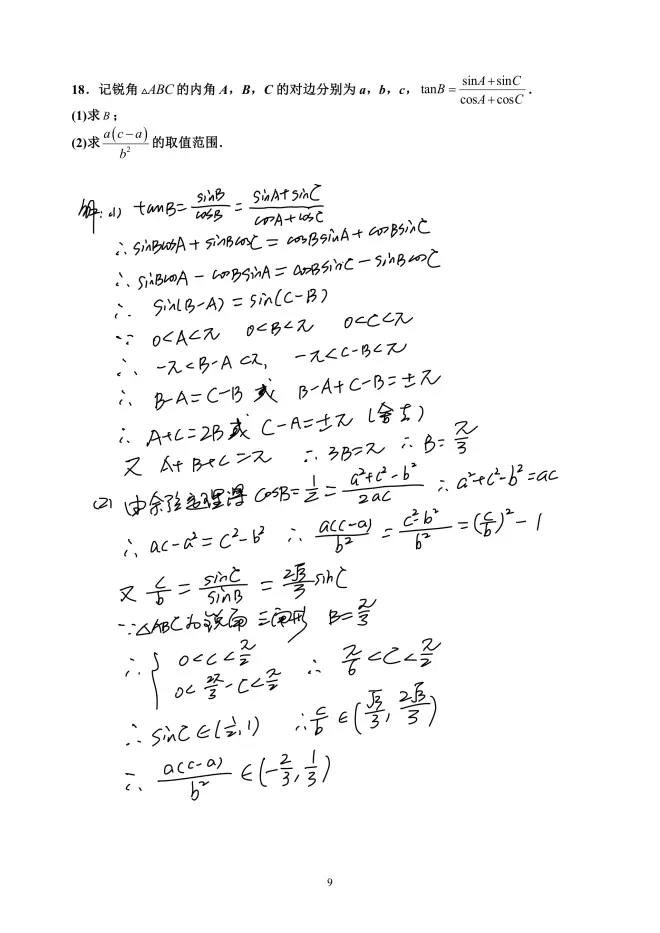 18．记锐角△ABC的内角A，B，C的对边分别为a，b，c，tanB = (sinA+sinC)/(cosA+cosC)．
(1)求B；
(2)求 a(c−a)/b² 的取值范围．
解:(1) tanB = sinB/cosB = (sinA+sinC)/(cosA+cosC)
∴ sinBcosA + sinBcosC = cosBsinA + cosBsinC
∴ sinBcosA − cosBsinA = cosBsinC − sinBcosC
∴ sin(B−A) = sin(C−B)
∵ 0<A<π 0<B<π 0<C<π
∴ −π<B−A<π, −π<C−B<π
∴ B−A=C−B 或 B−A+C−B=±π
∴ A+C=2B 或 C−A=±π (舍去)
又 A+B+C=π ∴ 3B=π ∴ B=π/3
(2) 由余弦定理得 cosB=1/2=(a²+c²−b²)/2ac ∴ a²+c²−b²=ac
∴ ac−a²=c²−b² ∴ a(c−a)/b² = (c²−b²)/b² = (c/b)²−1
又 c/b = sinC/sinB = 2√3/3 sinC
∵△ABC为锐角三角形 B=π/3
∴ { 0<C<π/2 ∴ π/6<C<π/2
0<2π/3−C<π/2
∴ sinC∈(1/2,1) ∴ c/b ∈(√3/3, 2√3/3)
∴ a(c−a)/b² ∈(−2/3, 1/3)
9